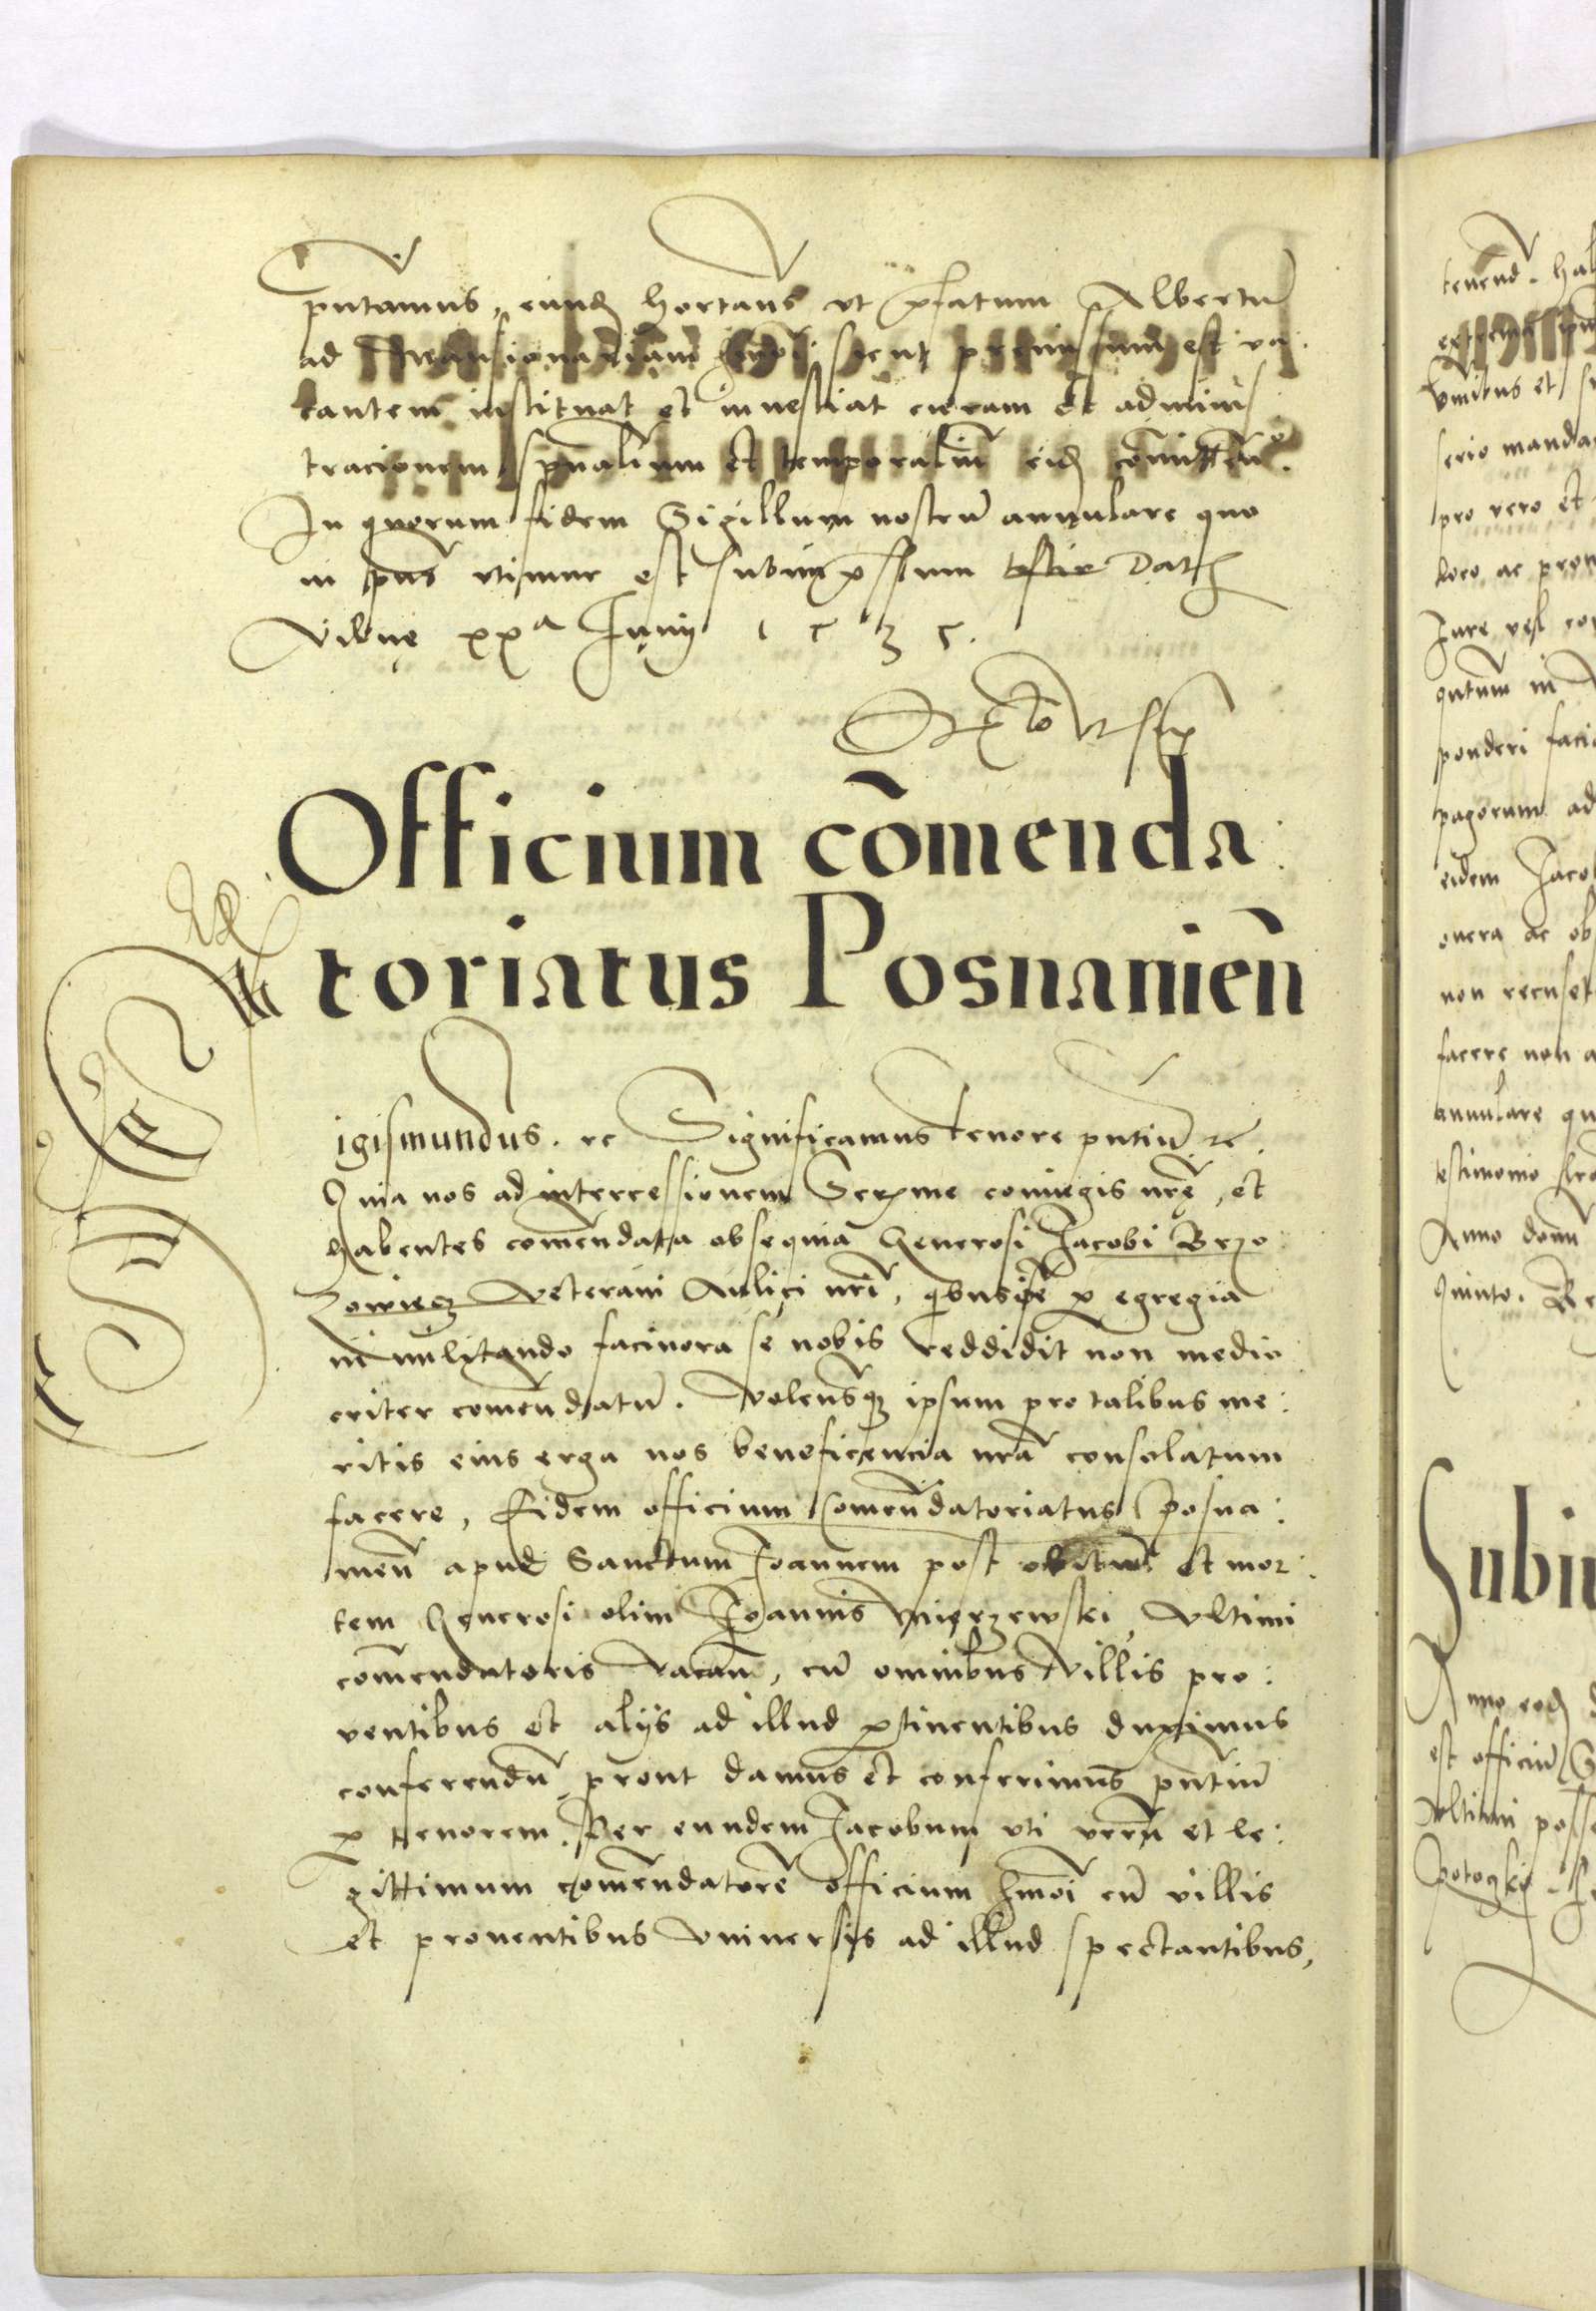 pntamus, eund hortans ut pfatum Albertu
ad Mansionariam hmoi sicut premissum est va.
cantem instituat et investiat curam et adminis
tracionem spualium et temporaliu eid comitten.
In quorum fidem Sigillum nostru annulare quo
in pns utimur est subimpssum Dat
Vilnę xxa Junij 1535.
Officium cōmenda:
toriatus Posnaniēn
Sigismundus. rc Significamus tenore pntiu rc.
Quia nos ad intercessionem Serxme coniugis nrę, et
habentes comendata obsequia Generosi Jacobi Brzo
zowiecz veterani Aulici nri, qbus ipe p egregia
in militando facinora se nobis reddidit non medio
criter comendatu. Volensq ipsum pro talibus me:
ritis eius erga nos beneficencia nra consolatum
facere, Eidem officium Comendatoriatus Posna:
nien apud Sanctum Joannem post obitum et mor:
tem Generosi olim Joannis Mierzewski, Ultimi
comendatoris vacan, cu omnibus villis pro:
ventibus et alijs ad illud ptinentibus duximus
conferendu prout damus et conferimus pntiu
p tenorem. Per eundem Jacobum uti veru et le:
gittimum comendatore officium hmoi cu villis
et proventibus universis ad illud spectantibus,
tenend. ha
omnibus et
serio manda
pro vero et
loco ac pro
Jure vel
qntum in
ponderi faci
pagorum ad
eidem Jaco
onera ac ob
non recuset
facere non a
annulare qu
testimonio
Anno domi
quinto. Re
Subin
Anno eod
est officiu
Ultimi posse
potoczki